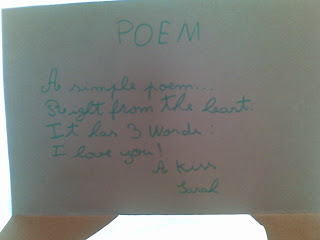 POEM
A simple poem...
Right from the heart:
It has 3 Words:
I love you!
A Kiss
Sarah